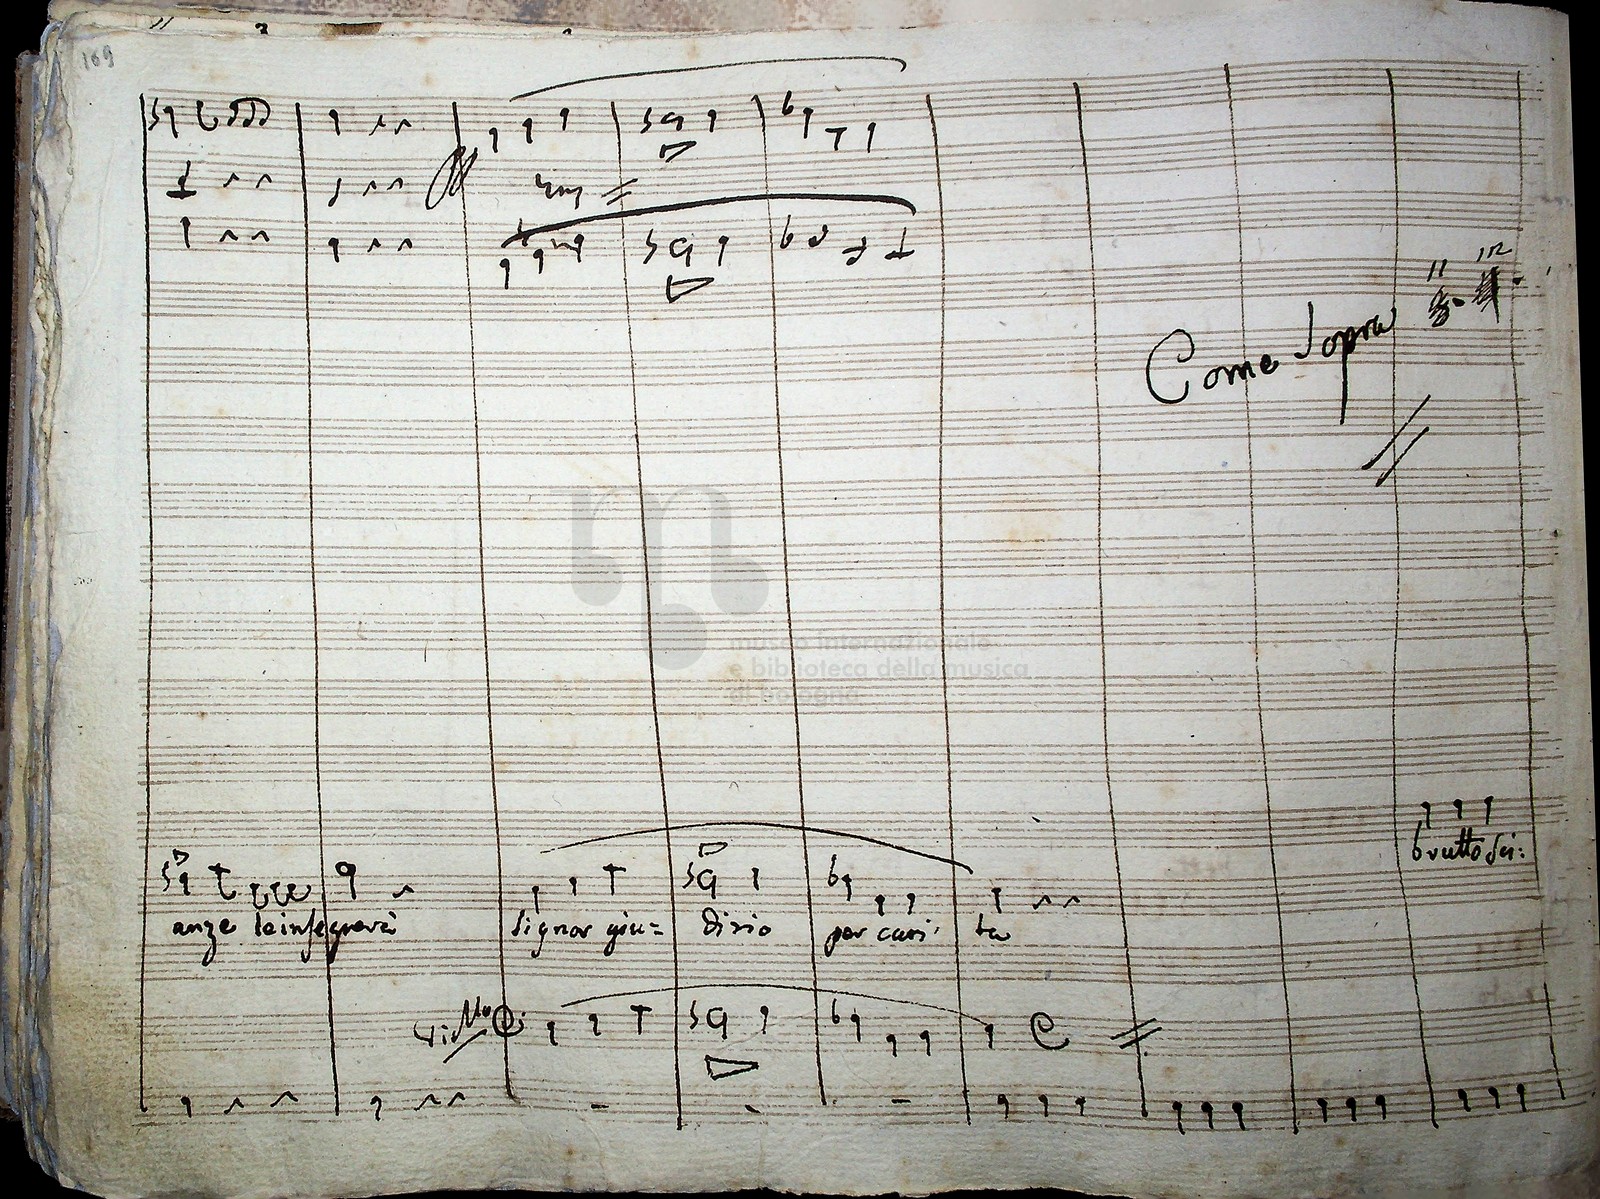 169
Come Sopra
brutto sci:
anze le insegnerà
Signor giu= dizio per cari: ta
museo internazionale
e biblioteca della musica
di bologna